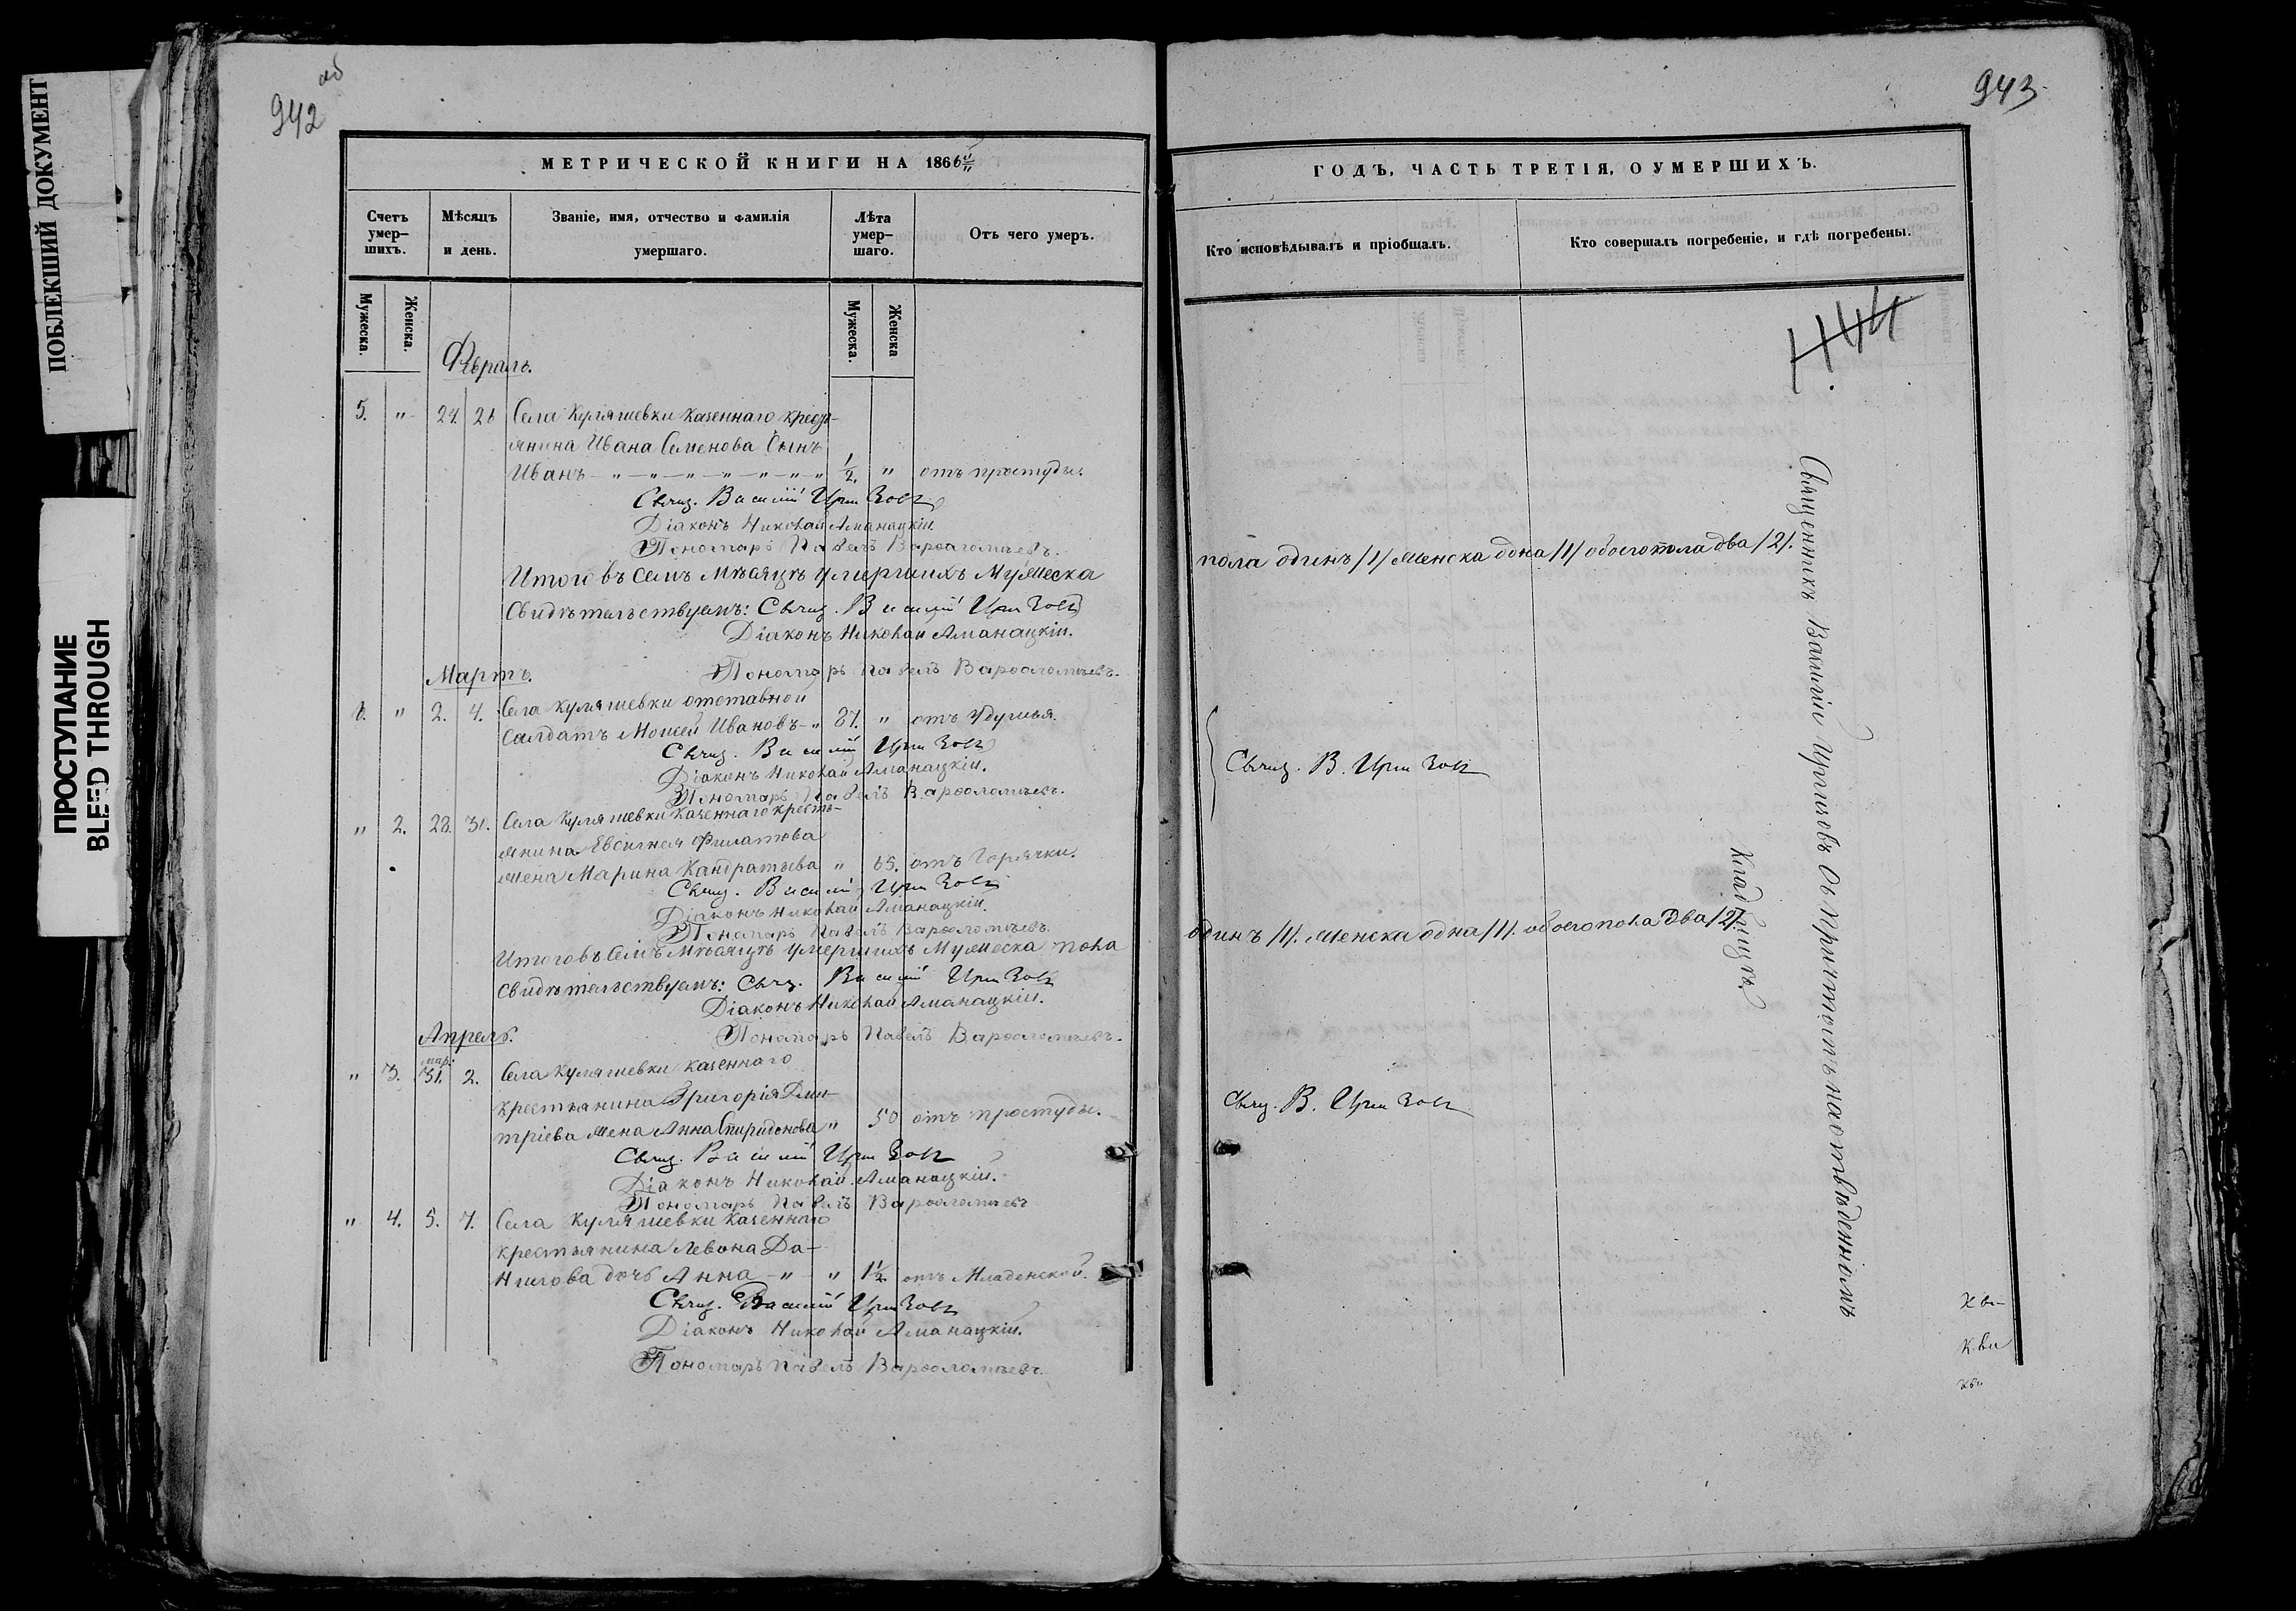 ПОБЛЕКШИЙ ДОКУМЕНТ
ПРОСТУПАНИЕ
BLEED THROUGH
942 об
МЕТРИЧЕСКОЙ КНИГИ НА 1866й
Счетъ умер-шихъ.
Мѣсяцъ и день.
Званіе, имя, отчество и фамилія умершаго.
Лѣта умер-шаго.
Отъ чего умеръ.
Мужеска.
Женска.
Мужеска.
Женска
Февраль.
5. " 24. 26 Села Куляшевки казеннаго кресть-
янина Ивана Семенова сынъ
Иванъ - " - " - " - " - " - " - " 1/2. " отъ простуды.
Свящ. Василій
Діаконъ Николай Аманацкій.
Пономарь Павелъ Варѳоломѣевъ.
Итого въ семъ мѣсяцѣ умершихъ мужеска
Свидѣтельствуемъ: Свящ. Василій
Діаконъ Николай Аманацкій.
Пономарь Павелъ Варѳоломѣевъ.
Мартъ.
6. " 2. 4. Села Куляшевки отставной
салдатъ Моисей Ивановъ - " 87. " отъ удушья.
Свящ. Василій
Діаконъ Николай Аманацкій.
Пономарь Павелъ Варѳоломѣевъ.
" 2. 28. 31. Села Куляшевки казеннаго кресть-
янина Евсигнея Филатова
жена Марина Кандратьева " 65. отъ горячки.
Свящ. Василій
Діаконъ Николай Аманацкій.
Пономарь Павелъ Варѳоломѣевъ.
Итого въ семъ мѣсяцѣ умершихъ мужеска пола
Свидѣтельствуемъ: Свящ. Василій
Діаконъ Николай Аманацкій.
Пономарь Павелъ Варѳоломѣевъ.
Апрель.
" 3. мар: 31. 2. Села Куляшевки казеннаго
крестьянина Григорія Дми-
тріева жена Анна Спиридонова " 50 отъ простуды.
Свящ. Василій
Діаконъ Николай Аманацкій.
Пономарь Павелъ Варѳоломѣевъ
" 4. 5. 7. Села Куляшевки казеннаго
крестьянина Левона Да-
нилова дочь Анна - " - " 1 1/2. отъ младенской.
Свящ. Василій
Діаконъ Николай Аманацкій.
Пономарь Павелъ Варѳоломѣевъ.
943
ГОДЪ, ЧАСТЬ ТРЕТІЯ, О УМЕРШИХЪ.
Кто исповѣдывалъ и пріобщалъ.
Кто совершалъ погребеніе, и гдѣ погребены.
пола одинъ /1/ женска одна /1/ обоего пола два /2/.
Свящ. В.
одинъ /1/. женска одна /1/. обоего пола два /2/.
Свящ. В.
Священникъ Василій съ причтомъ на отведенномъ
кладбищѣ.